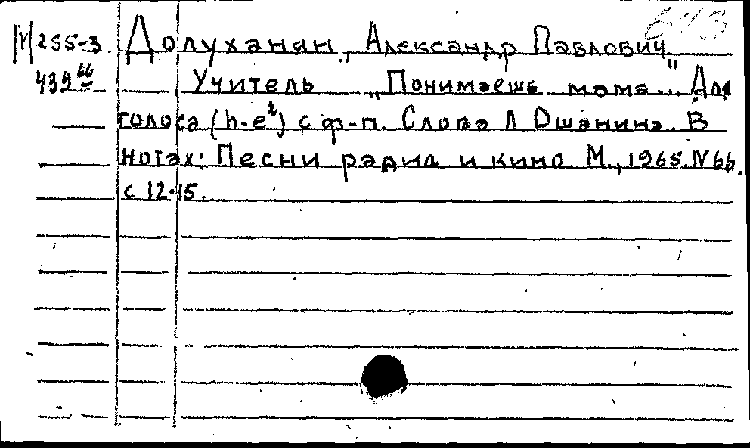 643
М 255-3 Долуханян, Александр Павлович
439 66 Учитель „Понимаешь мама..." Для
голоса (h-e²) с ф-п. Слова Л Ошанина. В
нотах: Песни радио и кино М., 1965. N 66.
с 12-15.